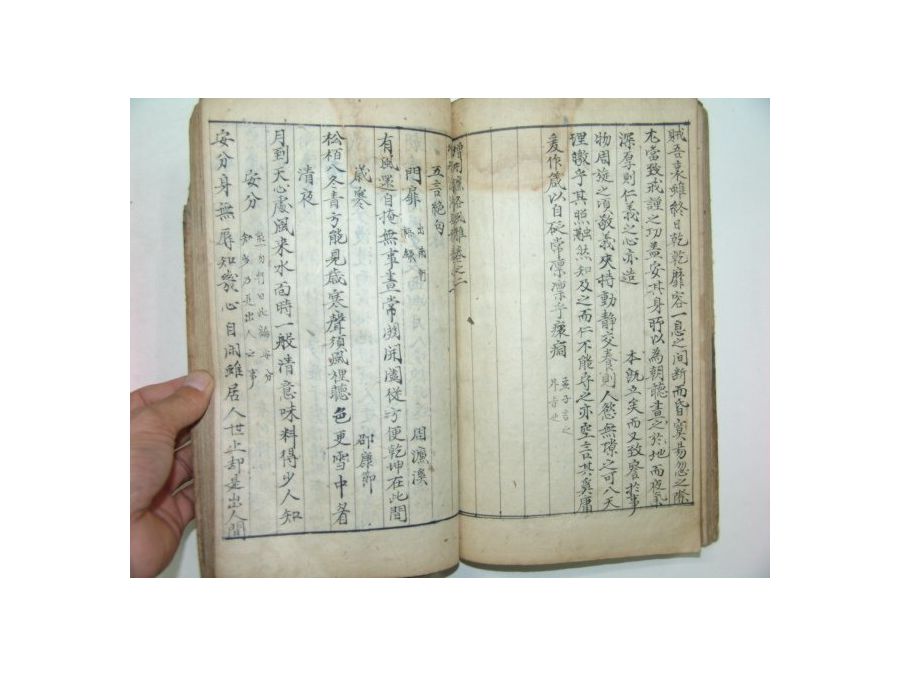 賊吾衰雖終日乾乾靡容一息之間断而昏冥易忽之際
尤當致戒謹之功盖安其身所以為朝聽晝之於地而夜氣
深厚則仁義之心亦
本既立矣而又致察於事
物周旋之頃敬義夾持動靜交養則人慾無隙之可入天
理皦乎其照融然知及之而仁不能守之亦空言其奚庸
爰作箴以自砭常凛凛乎瘝痌
卷之二
五言絶句
門扉 周濂溪
有風還自掩無事晝常開開闔從方便乾坤在此間
歲寒 邵康節
松栢入冬青方能見歳寒聲須風裡聽色更雪中看
清夜
月到天心處風来水面時一般清意味料得少人知
安分
安分身無辱知幾心自閑雖居人世上却是出人間